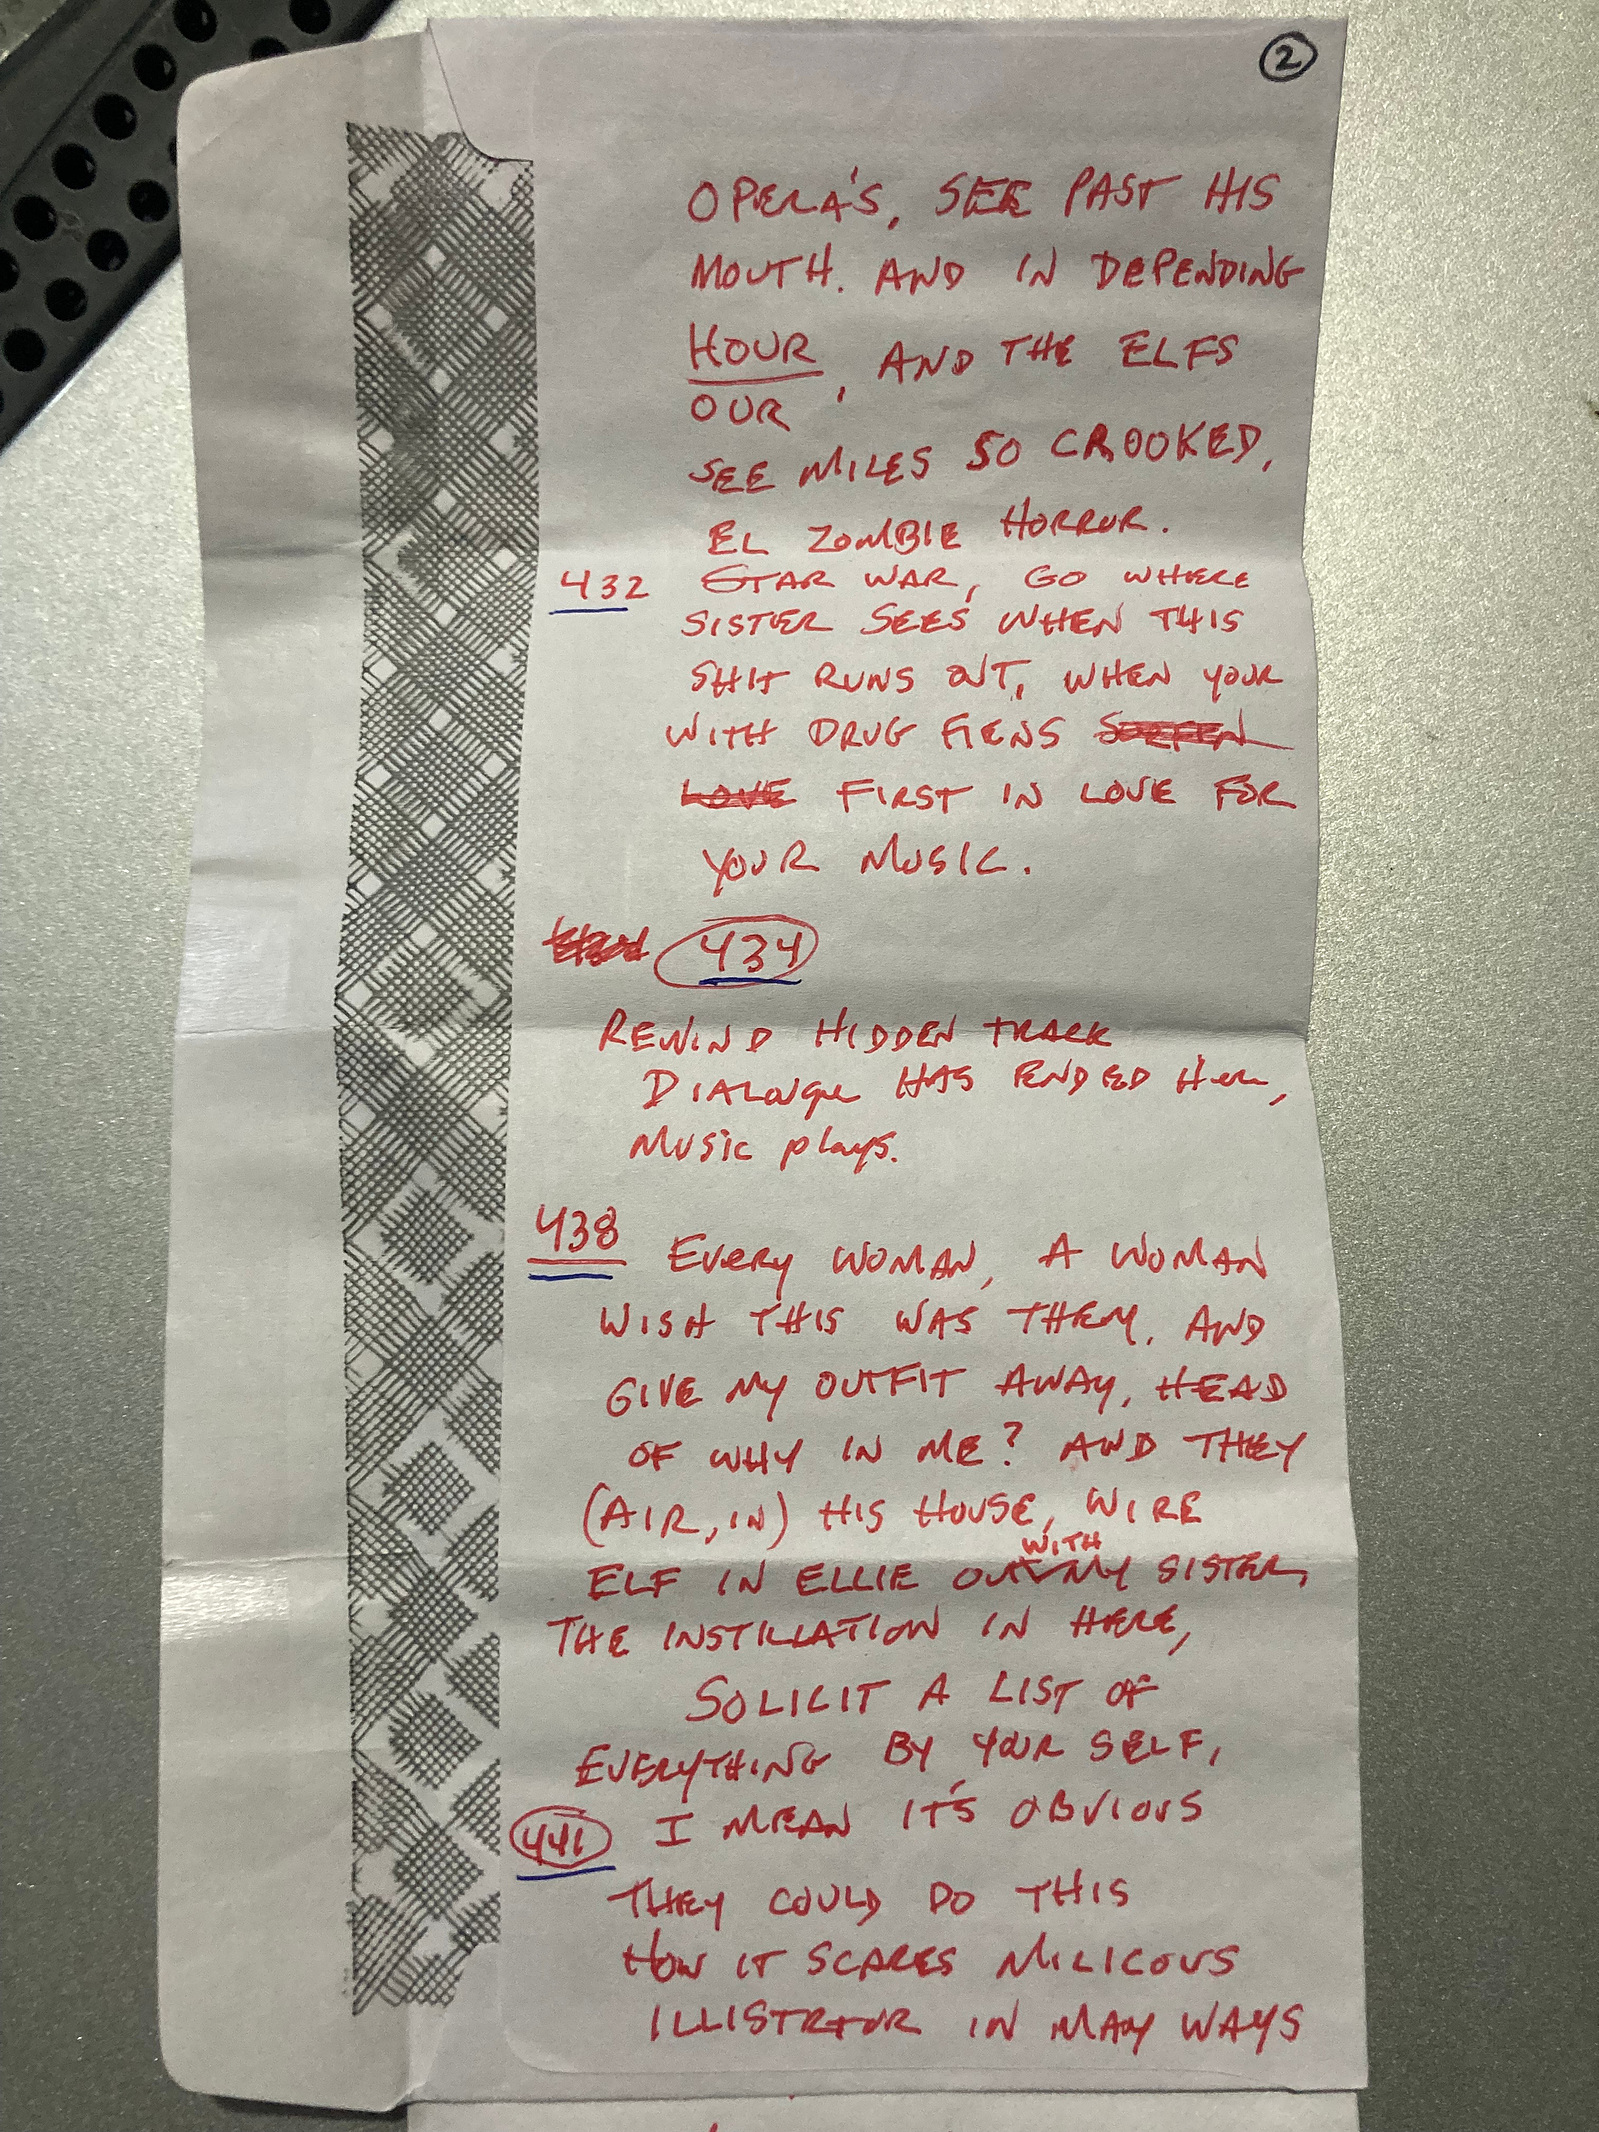 2
OPERA'S, SEE PAST HIS
MOUTH. AND IN DEPENDING
HOUR, AND THE ELFS
OUR
SEE MILES SO CROOKED,
EL ZOMBIE HORROR.
432 STAR WAR, GO WHERE
SISTER SEES WHEN THIS
SHIT RUNS OUT, WHEN YOUR
WITH DRUG FIENS
LOVE FIRST IN LOVE FOR
YOUR MUSIC.
434
REWIND HIDDEN TRACK
DIALOUGE HAS ENDED HERE,
MUSIC plays.
438 EVERY WOMAN, A WOMAN
WISH THIS WAS THEM. AND
GIVE MY OUTFIT AWAY, HEAD
OF WHY IN ME? AND THEY
(AIR, IN) HIS HOUSE, WIRE
WITH
ELF IN ELLIE OUT MY SISTER,
THE INSTILLATION IN HERE,
SOLICIT A LIST OF
EVERYTHING BY YOUR SELF,
441 I MEAN IT'S OBVIOUS
THEY COULD DO THIS
HOW IT SCARES MILICOUS
ILLISTRTOR IN MAY WAYS